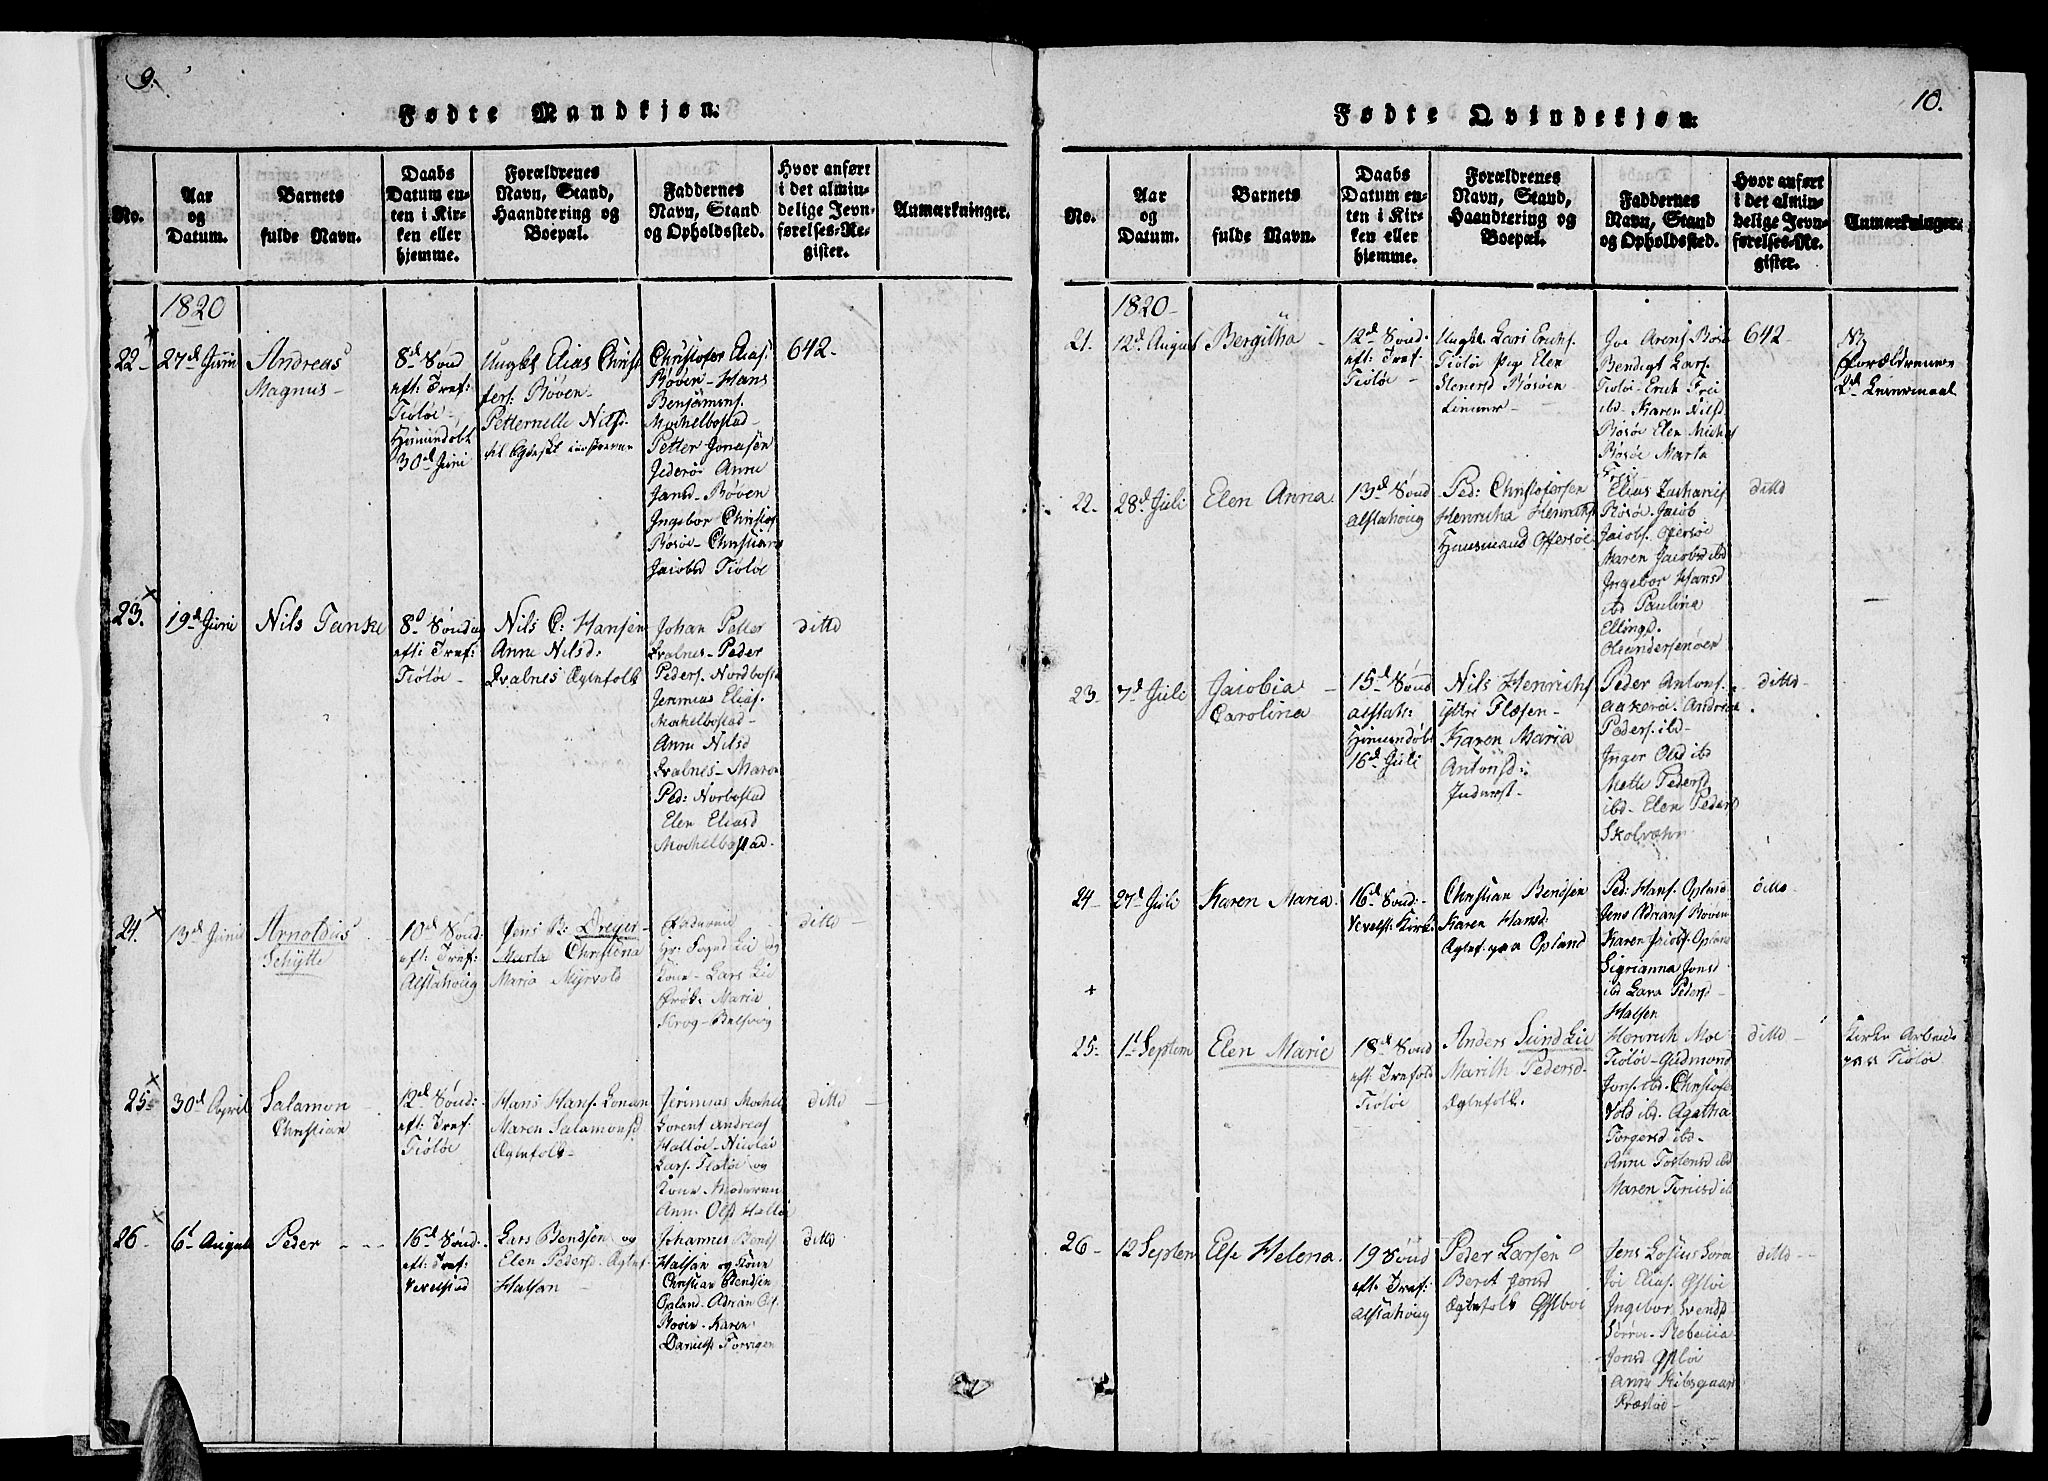 9.
Fødte Mandkjøn.
No.
Aar
og
Datum.
Barnets
fulde Navn.
Daabs
Datum en-
ten i Kir-
ken eller
hjemme.
Forældrenes
Navn, Stand,
Haandtering og
Boepæl.
Faddernes
Navn, Stand
og Opholdssted.
Hvor anført
i det almin-
delige Jevn-
førelses-Re-
gister.
Anmærkninger.
1820
22-
27d Juni
Andreas
Magnus-
8d Sønd
eft: Tref:
Tiøtøe-
Hiemmdøbt
30d Juni
Ungkl Elias Christ
fers: Røven-
Petternelle Nilsd.
Christofer Elias.
Røven- Hans
Benjamins.
Mochelbostad-
Petter Jonasen
Anne
Jansd- Røven
Ingebor Christof
Rosøe- Christiana
Jacobsd Tiøtøe
642-
23.
19d Juni
Nils Tanke
8d Søndag
eft: Tref:
Tiøtøe-
Nils C: Hansen
Anne Nilsd:
Qvalnes Egtefolk
Johan Petter
Qvalnes- Peder
Peders. Nordbostad
Jeremias Elias.
Mochelbostad-
Anne Nilsd
Qvalnes- Maren
Ped: Norbostad
Elen Eliasd
Mochelbostad.
ditto
24.
13d Junii
Arnoldus
Schytte
10d Sønd:
eft: Tref:
Alstahoug
Jens B: Dreyer-
Marta Christina
Maria Myrvold
Hr: Sogned Lie og
Kone- Lars Lie
Frøk: Maria
Krog- Belsvig
ditto
25-
30d April
Salamon
Christian
12d Sønd:
eft: Tref:
Tiøtøe
Hans Hans.
Maren Salamonsd
Egtefolk-
Jerimias Mochel
Lorent Andreas
Halsøe- Nicolai
Lars. Tiøtøe og
Kone Moderen
Ann. Olsd
ditto
26
6d August
Peder
16d Sønd:
eft: Tref:
Vevelstad
Lars Bendsen og
Elen Pedersd. Egtef
Halsan-
Johannes Bents
Halsan og Kone
Christian Bendsen
Opland. Adrian
Røven- Karen
Danielsd Forvigen
ditto
10.
Fødte Qvindekjøn.
No.
Aar
og
Datum.
Barnets
fulde Navn.
Daabs
Datum en-
ten i Kir-
ken eller
hjemme.
Forældrenes
Navn, Stand,
Haandtering og
Boepæl.
Faddernes
Navn, Stand
og Opholdssted.
Hvor anført
i det almin-
delige Jevn-
førelses-Re-
gister.
Anmærkninger.
1820-
21.
12d August
Bergitha-
12d Sønd:
eft: Tref:
Tiøtøe-
Ungkl Lars Erichs.
Tiøtøe Pige Elen
Stenersd Rosøen
Joe Arens
Bendigt Lars.
Tiøtøe- Erich
ibd- Karen Nilsd
Rosøe Elen Michels
Rosøe Marta
642-
NB
Forældrenes
2d Leiermaal
22-
28d Juli
Elen Anna
13d Sønd
Alstahoug
Ped: Christofersen
Henricha Henrichs
Huusmand Offersøe
Elias Zacharis
Rosøe- Jacob
Jacobs. Offersøe
Maren Jacobsd ibd
Ingebor Hansd
ibd Paulina
Ellingd.
ditto
23-
7d Juli
Jacobia
Carolina
15d Sønd
Alstah:
Hiemmdøbt
16d Juli
Nils Henrichs
Karen Maria
Antonsd:
Inderst-
Peder Antons.
Aakerøe. Andreas
Peders. ibd-
Inger Olsd ibd
Mette Pedersd
ibd- Elen Peders
ditto-
24-
27d Juli
Karen Maria
16d Sønd:
Vevelst: Kirke
Christian Bendsen
Karen Hansd:
Egtef: paa Opland
Ped: Hans. Opland
Jens Adrians Røven
Karen Jacobs. Opland
Sigrianna Jonsd
ibd Lava Pedersd-
Halsen
ditto-
25-
1d Septem
Elen Marie
18d Sønd
eft Trefold
Tiøtøe
Anders Sund Lie
Marith Pedersd-
Egtefolk.
Henrich Moe
Tiøtøe- Gudmond
Jons. ibd. Christofer
Vold ibd. Agatha
Torgersd ibd-
Anne Tostensd ibd
Maren ibd
ditto-
Kirke Arbeide
paa Tiøtøe
26-
12 Septem
Else Helena.
19 Sønd
eft: Tref:
Alstahoug
Peder Larsen
Berit Jonsd
Egtefolk
Jens
Joe Elias.
Ingebor Svendsd
Rebecka
Jonsd
Anne
Præstøe-
ditto--